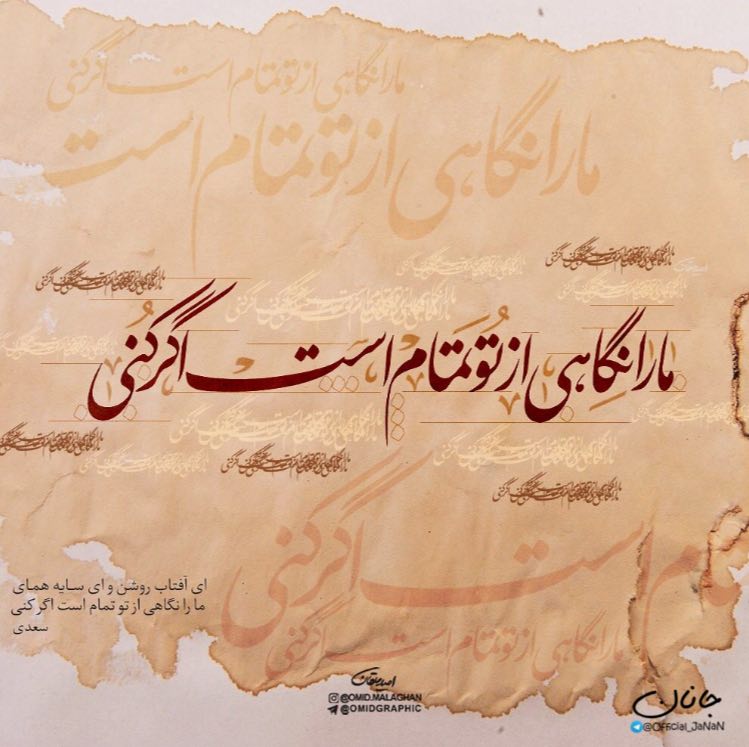 ما را نگاهی از تو تمام است اگر کنی
ما را نگاهی از تو تمام است
ما را نگاهی از تو تمام است اگر کنی
تمام است اگر کنی
ما را نگاهی از تو تمام است اگر کنی
ای آفتاب روشن و ای سایه همای
ما را نگاهی از تو تمام است اگر کنی
سعدی
امید ملاقان
@OMID.MALAGHAN
@OMIDGRAPHIC
جانان
@Official_JaNaN